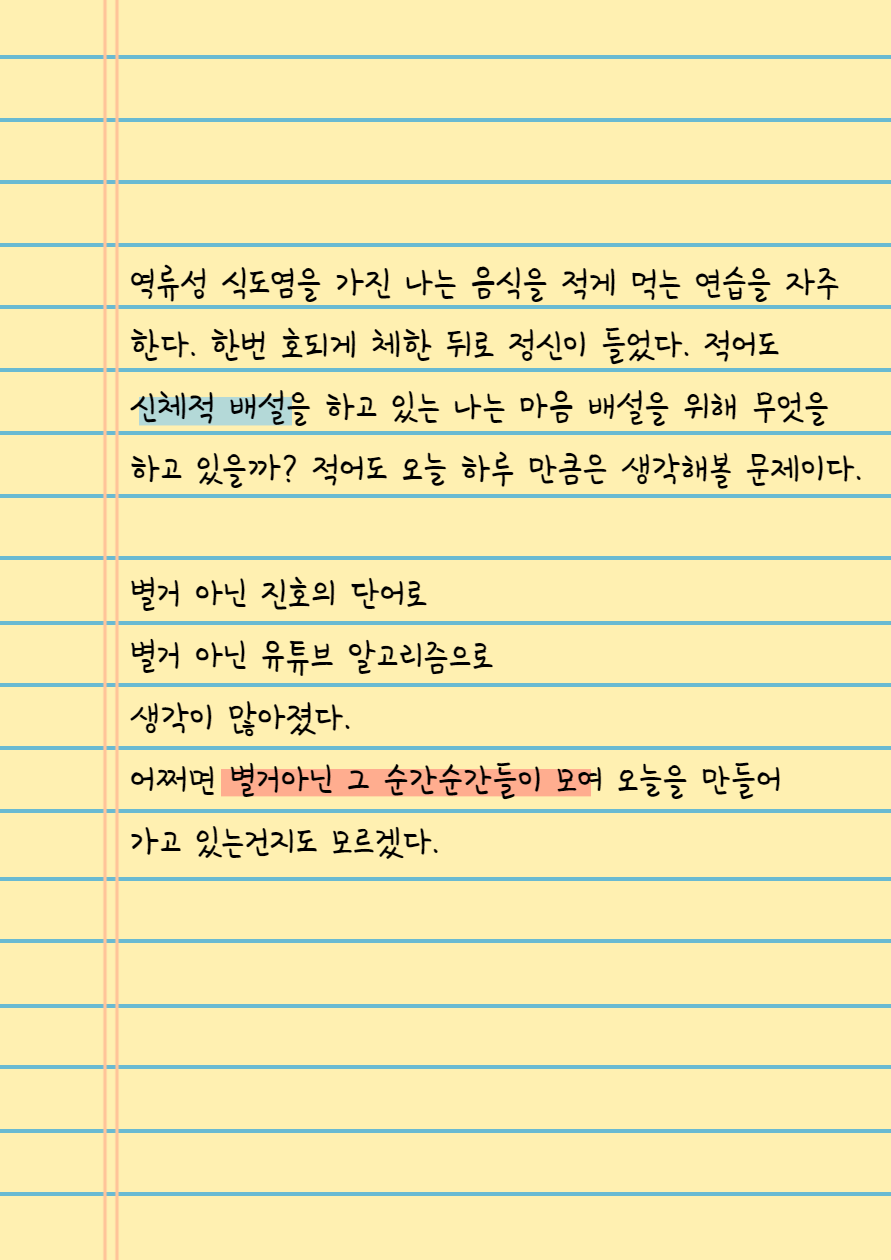 역류성 식도염을 가진 나는 음식을 적게 먹는 연습을 자주
한다. 한번 호되게 체한 뒤로 정신이 들었다. 적어도
신체적 배설을 하고 있는 나는 마음 배설을 위해 무엇을
하고 있을까? 적어도 오늘 하루 만큼은 생각해볼 문제이다.
별거 아닌 진호의 단어로
별거 아닌 유튜브 알고리즘으로
생각이 많아졌다.
어쩌면 별거아닌 그 순간순간들이 모여 오늘을 만들어
가고 있는건지도 모르겠다.